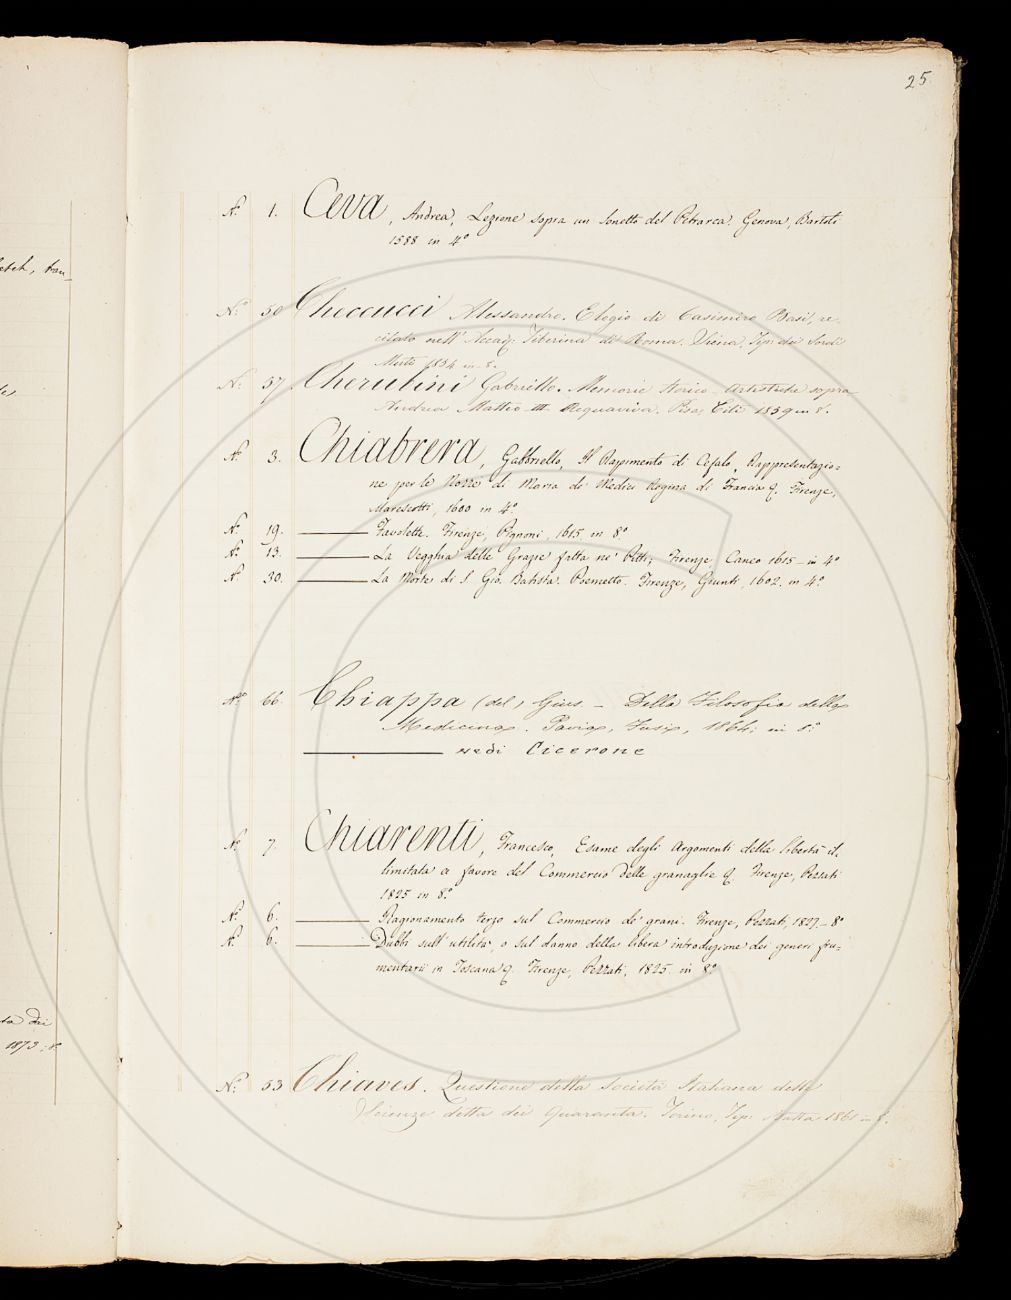 25
N.º 1. Ceva, Andrea, Lezione sopra un Sonetto del Petrarca. Genova, Bartoli
1588 in 4.º
N.º 50 Checcucci Alessandro. Elogio di Casimiro Basi, re-
citato nell' Accad. Tiberina di Roma. Siena, Tip. dei Sordi
Muti 1854 in 8.
N.º 57 Cherubini Gabriello. Memorie storico-artistiche sopra
Andrea Matteo III Acquaviva. Pisa, Citi 1859 in 8.º
N.º 3. Chiabrera, Gabbriello, Il Rapimento di Cefalo, Rappresentazio=
ne per le Nozze di Maria de' Medici Regina di Francia &. Firenze,
Marescotti, 1600 in 4.º
N.º 19. Favolette. Firenze, Pignoni, 1615 in 8.º
N.º 13. La Vegghia delle Grazie fatta ne' Pitti; Firenze 1615 in 4.º
N.º 30. La Morte di S. Gio. Batista. Poemetto. Firenze, Giunti, 1602. in 4.º
N.º 66. Chiappa (del) Gius. - Della Filosofia della
Medicina. Pavia, Fusi, 1864; in 8.º
vedi Cicerone
N.º 7. Chiarenti, Francesco, Esame degli Argomenti della libertà il-
limitata a favore del Commercio delle granaglie &. Firenze, Pezzati
1825 in 8.º
N.º 6. Ragionamento terzo sul Commercio de' grani. Firenze, Pezzati, 1827. 8.º
N.º 6. Dubbi sull' utilità, o sul danno della libera introduzione dei generi fru=
mentarii in Toscana &. Firenze, Pezzati, 1825 in 8.º
N.º 53 Chiaves. Questione della Società Italiana delle
Scienze detta dei Quaranta. Torino, Tip. 1861 in 8.
1873; 8.